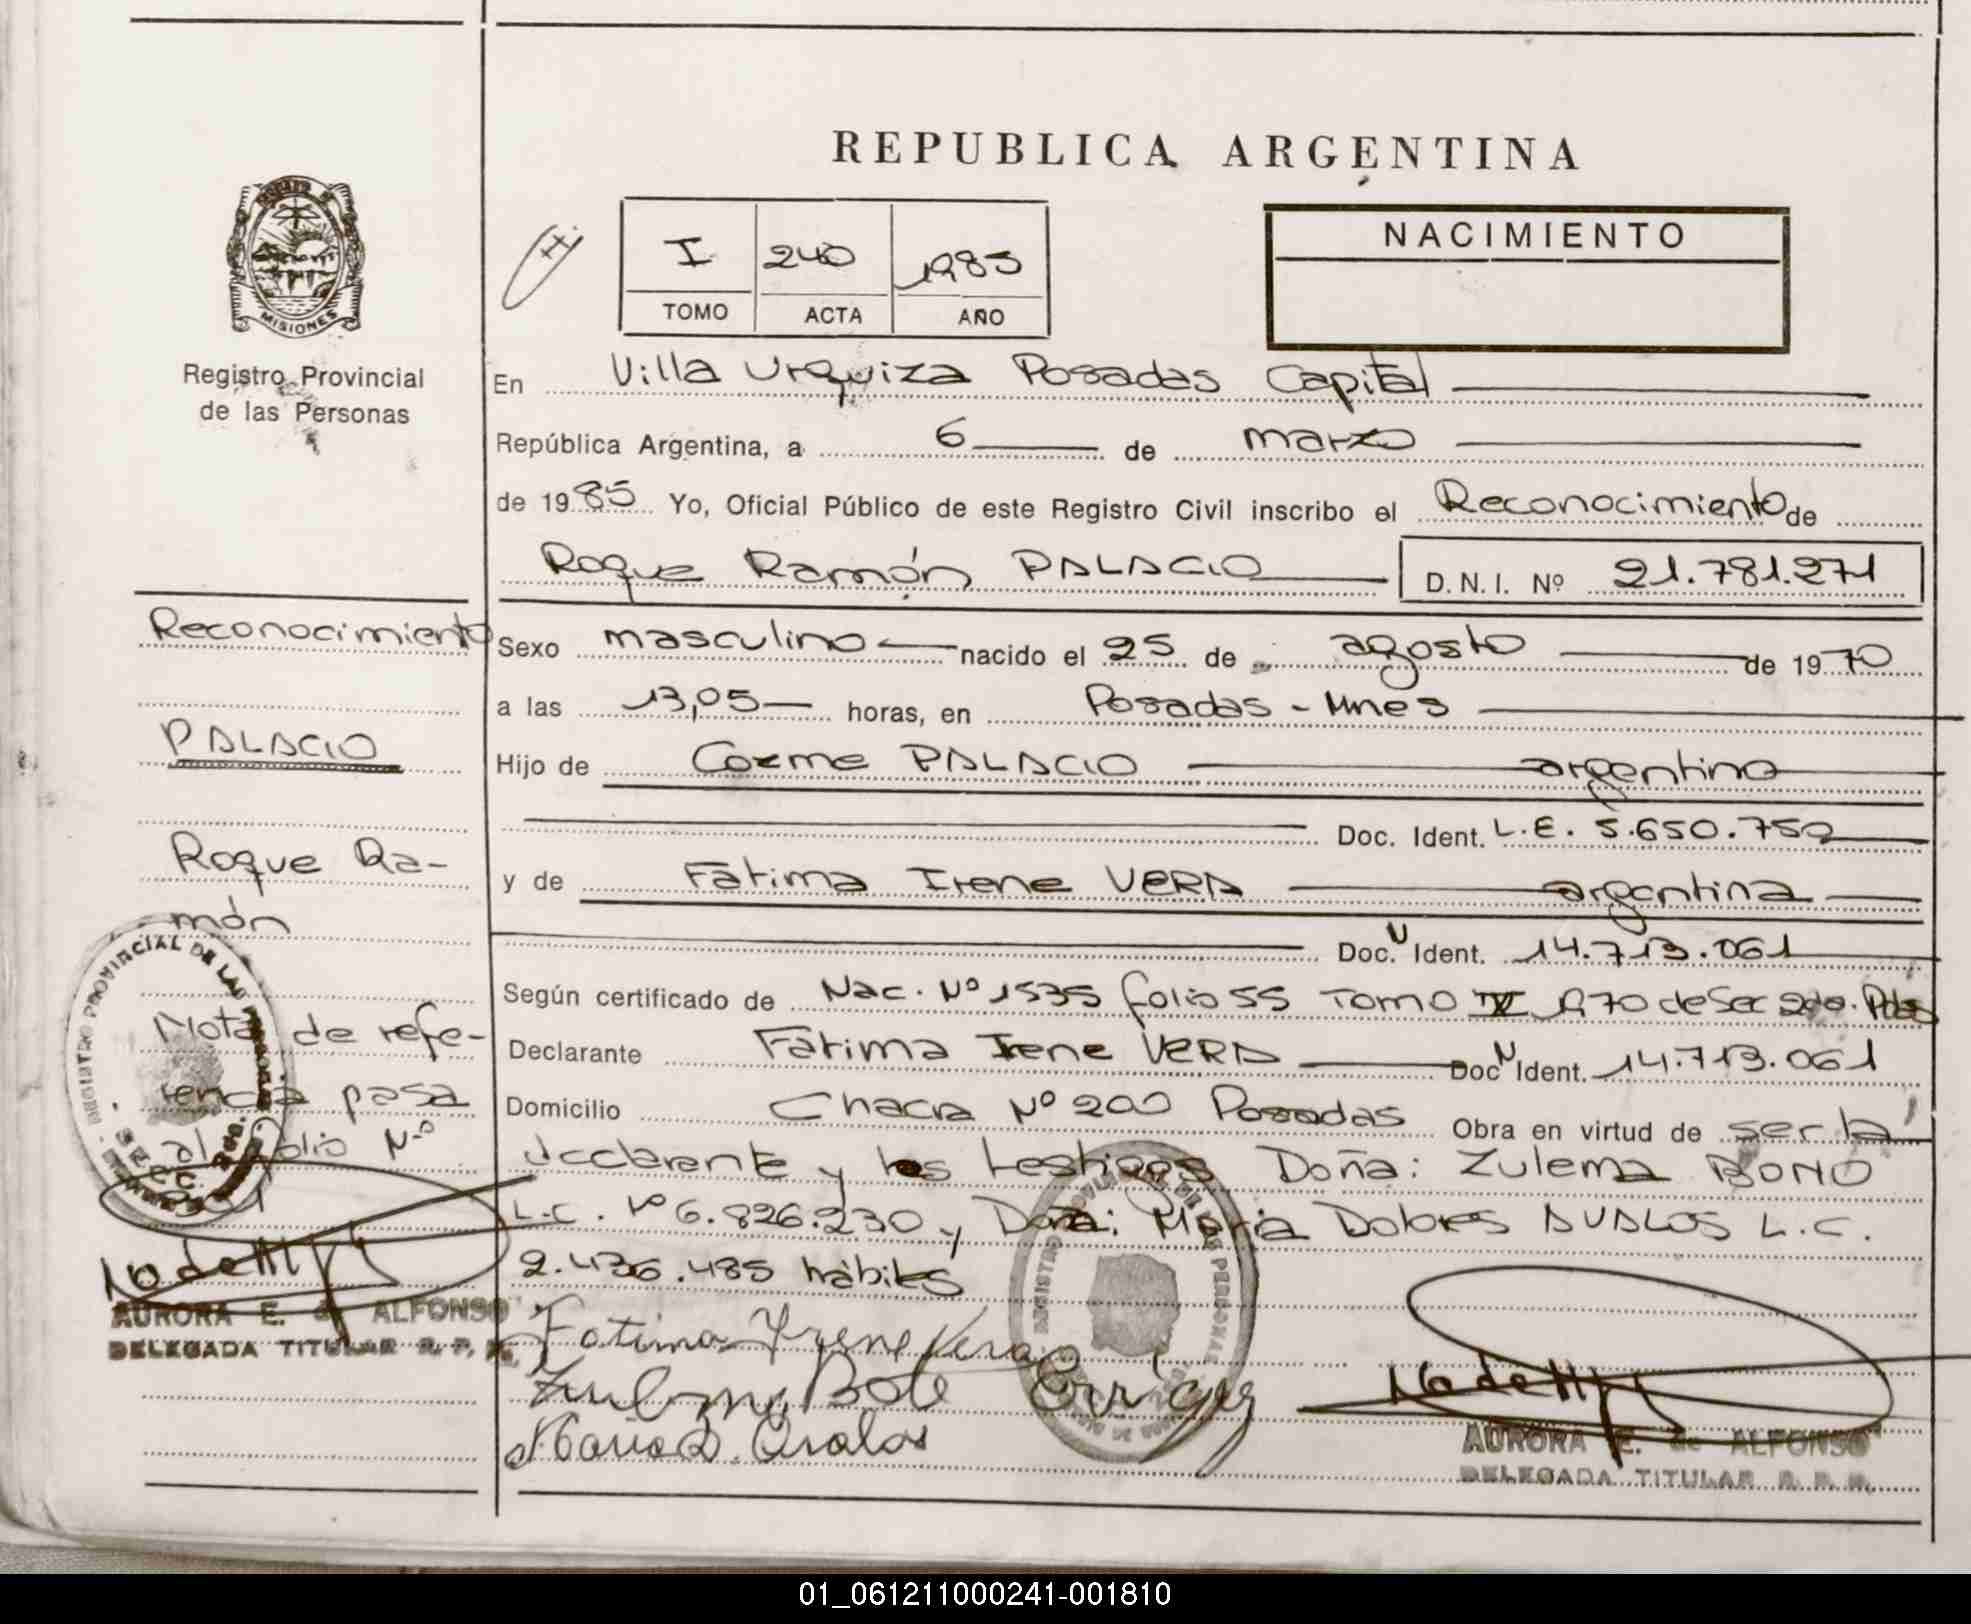 REPUBLICA ARGENTINA
MISIONES
Registro Provincial
de las Personas
I 240 1985
TOMO ACTA AÑO
NACIMIENTO
En Villa Urquiza Posadas Capital
República Argentina, a 6 de marzo
de 1985 Yo, Oficial Público de este Registro Civil inscribo el Reconocimiento de
Roque Ramón PALACIO D.N.I. Nº 21.781.271
Sexo masculino nacido el 25 de agosto de 1970
a las 13,05 horas, en Posadas - Mnes
Hijo de Cosme PALACIO argentino
Doc. Ident. L.E. 5.650.752
y de Fátima Irene VERA argentina
Doc. U Ident. 14.713.061
Según certificado de Nac. Nº 1535 folio 55 Tomo IV 970 de Sec 2da. Pdas
Declarante Fátima Irene VERA Doc N Ident. 14.713.061
Domicilio Chacra Nº 200 Posadas Obra en virtud de ser la
declarante y los testigos Doña: Zulema BONO
L.C. Nº 6.826.230 y Doña: María Dolores AVALOS L.C.
2.436.485 hábiles
Fatima Yrene Vera
Maria D. Avalos
AURORA E. de ALFONSO
DELEGADA TITULAR R. P. P.
Reconocimiento
PALACIO
Roque Ra-
món
Nota de refe-
rencia pasa
al folio Nº
REGISTRO PROVINCIAL DE LAS PERSONAS
SECC. 2da.
AURORA E. de ALFONSO
DELEGADA TITULAR R. P. P.
01_061211000241-001810